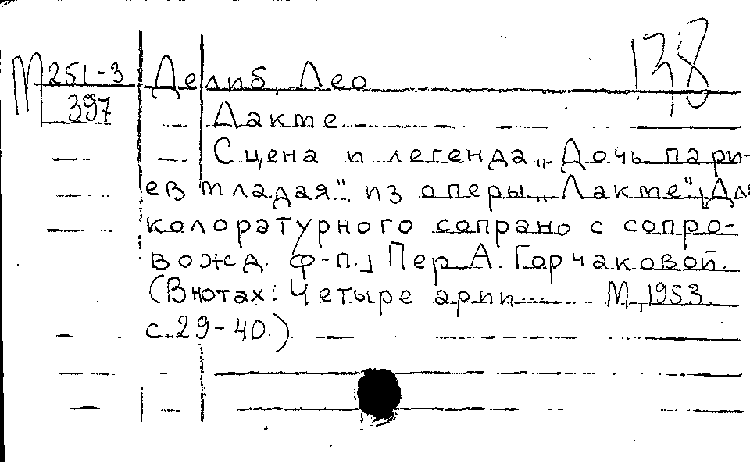 138
М 251-3 Делиб, Лео
397 Лакме
Сцена и легенда „Дочь пари-
ев младая" из оперы „Лакме". [Для
колоратурного сопрано с сопро-
вожд. ф-п.] Пер. А. Горчаковой.
(В нотах: Четыре арии ... М., 1953.
с. 29-40.)